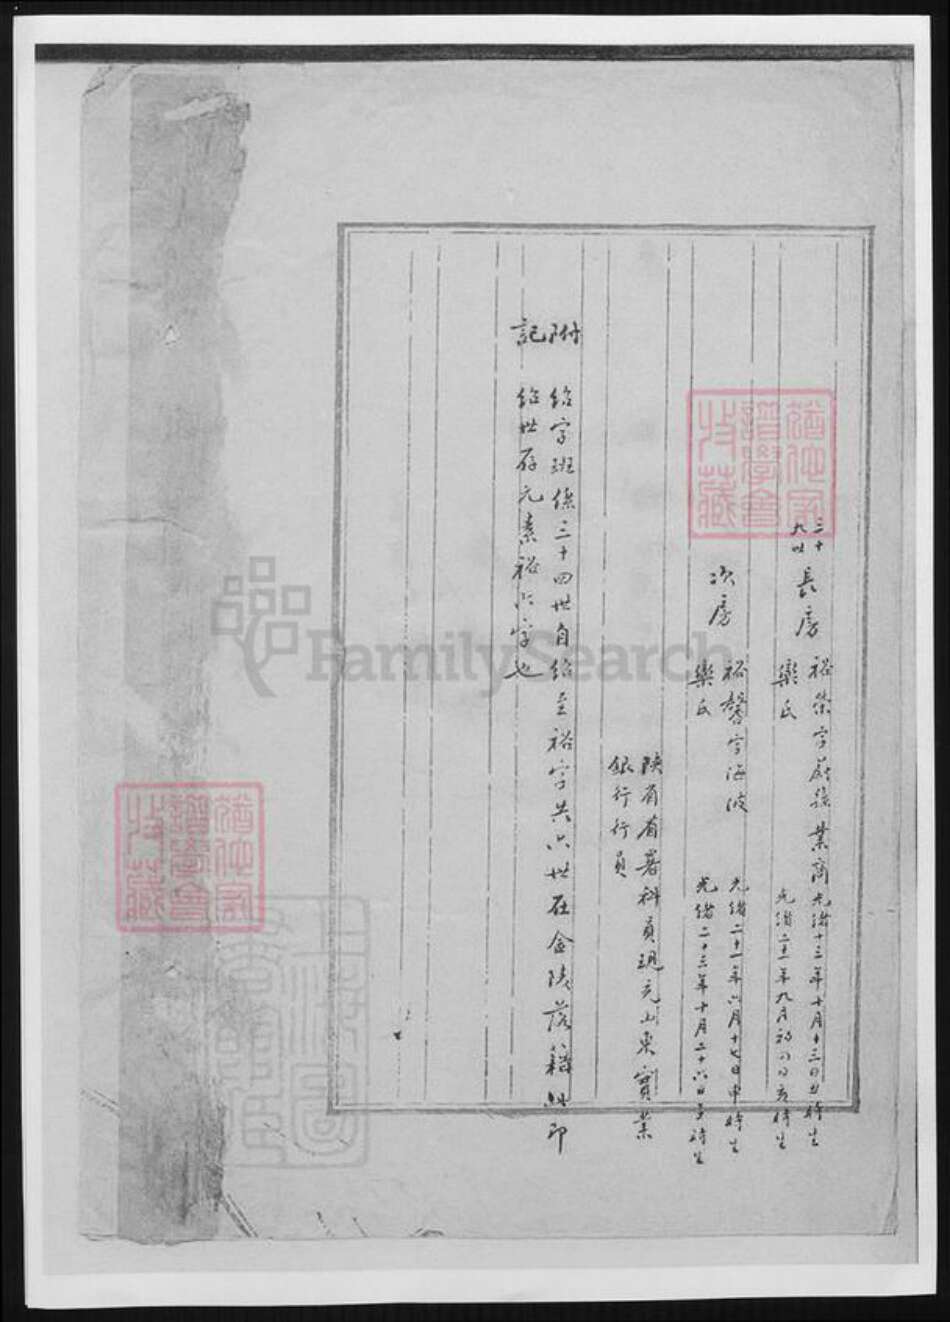 三十
九世
長房
裕榮字蔚孫業商
光緒十三年十月十三日丑時生
樂氏
光緒二十一年九月初四日亥時生
次房
裕馨字海波
光緒二十一年六月十七日申時生
樂氏
光緒二十三年十月二十六日子時生
陝省省署科員現充山東實業
銀行行員
附記
紹字班係三十四世自紹至裕字共六世在金陵落籍此即
紹世存元素裕六字也
猶他家
譜學會
收藏
猶他家
譜學會
收藏
FamilySearch